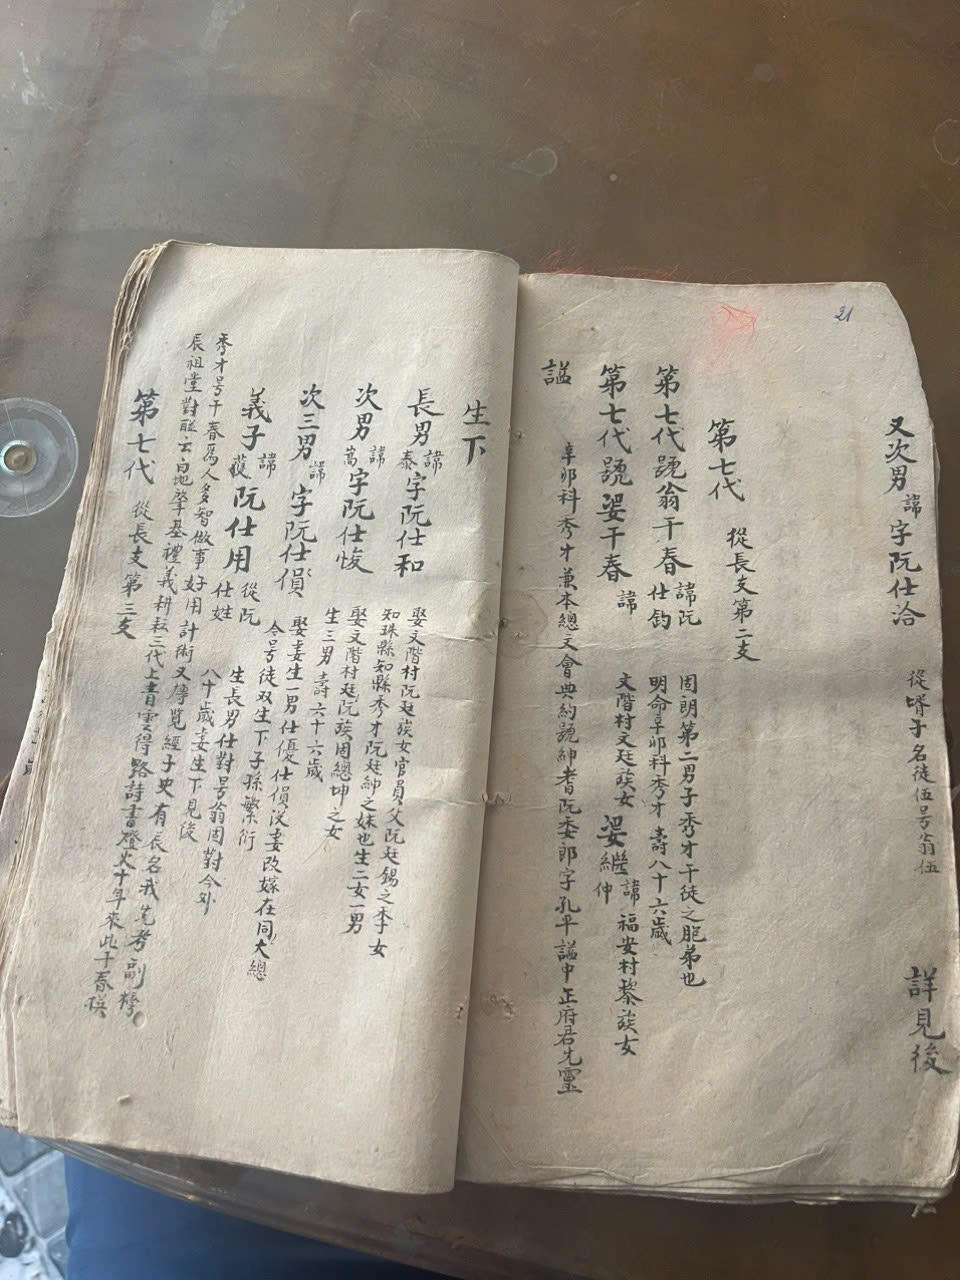 21
又次男諱字阮仕洽 從壻子名徒伍号翁伍 詳見後
第七代 從長支第二支
第七代號翁干春諱阮仕鈞 固朗第二男子秀才干徒之胞弟也
明命辛卯科秀才 壽八十六歲
第七代號𡞕干春諱 文階村文廷族女 𡞕繼諱仲 福安村黎族女
謚 辛卯科秀才兼本總文會典約號紳耆阮委郎字孔平謚中正府君尤靈
生下
長男諱泰字阮仕和 娶文階村阮廷族女官員父阮廷錫之季女
知珠縣知縣秀才阮廷紳之妹也生二女一男
次男諱嵩字阮仕悛 娶文階村廷阮族固總坤之女
生三男 壽六十六歲
次三男諱字阮仕償 娶妾生一男仕優仕償沒妾改嫁在同大總
今号徒双生下子孫繁衍
義子諱䕶阮仕用 從阮仕姓 生長男仕對号翁固對今外
八十歲妾生下見後
秀才号干春爲人多智做事好用計術又愽覽經子史有辰名我先考副榜
辰祖堂對聮云邑地肇基禮義耕耘三代上書雲得路詩書燈火十年來此干春
第七代 從長支第三支